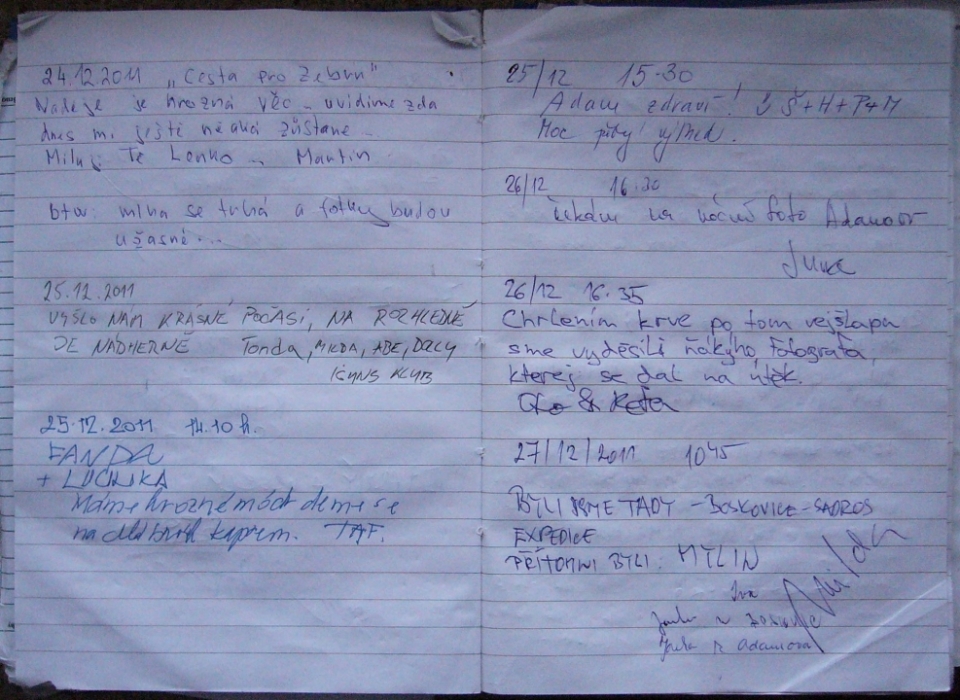 24.12.2011 „Cesta pro Zebru"
Naděje je hrozná věc - uvidíme zda
dnes mi ještě nějaká zůstane..
Miluj Tě Lenko .. Martin
btw: mlha se trhá a fotky budou
užasné...
25.12.2011
VYŠLO NÁM KRÁSNÉ POČASÍ, NA ROZHLEDNĚ
JE NÁDHERNĚ Tonda, MILDA, ABE,
KLUB
25.12.2011 14.10 h.
FANDA
+ LUCINKA
Máme hrozně moc deme se
na kaprem. TAF.
25/12 15-30
Adam zdraví! Š+H+P+M
Moc pěkný výhled.
26/12 16.30
Čekám na noční foto Adamov
26/12 16.35
Chrlením krve po tom vejšlapu
sme vyděsili ňákýho fotografa,
kterej se dal na útěk.
& Keťa
27/12/2011 1045
BYLI JSME TADY - BOSKOVICE - SADROS
EXPEDICE
PŘÍTOMNI BYLI: MYLIN
Iva
Milda
z Adamova